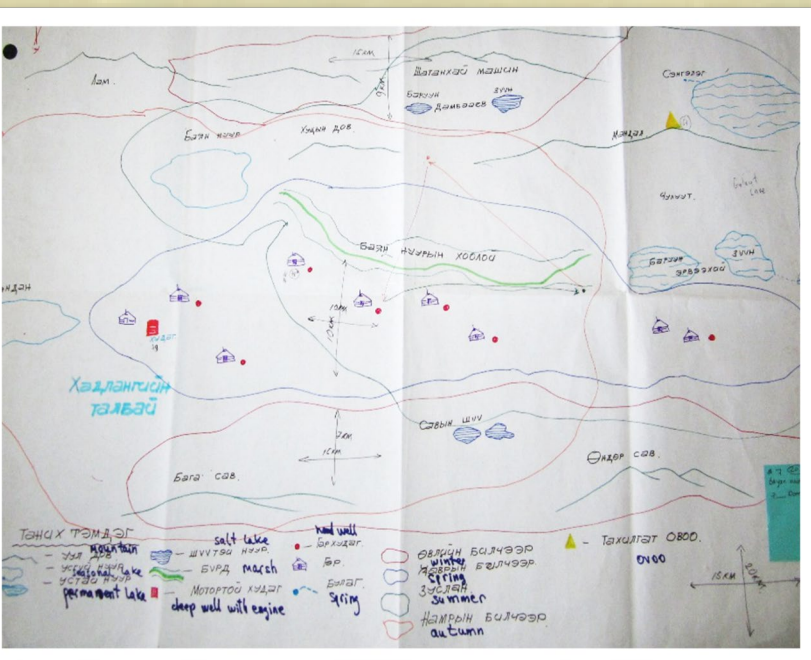 Лам.
15км
9км
Шатанхай машин
Баруун
зүүн
Дамбаев
Сэнгэлэг
Баян нуур
Хуцын дов
Мандал
Чулуут.
Баян нуурын хоолой
Баруун
зүүн
эрвээлэй
ндан
10км
10км
худаг
Хадлангийн
талбай
Савын шуу
7км
15км
Бага сав.
Өндөр сав.
Таних тэмдэг
уул дов
mountain
усгүй нуур
seasonal lake
устай нуур
permanent lake
salt lake
шүүтэй нуур.
Бүрд marsh
Мотортой худаг
deep well with engine
hand well
Гар худаг.
Гэр.
Булаг.
spring
Өвлийн Билчээр
winter
Хаврын Билчээр
spring
Зуслан
summer
Намрын Билчээр
autumn
Тахилгат овоо.
ovoo
15км
20км